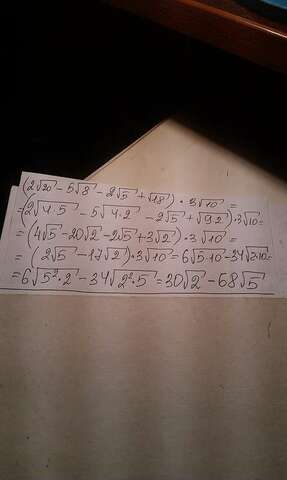 (2√20 - 5√8 - 2√5 + √18) · 3√10 =
= (2√4·5 - 5√4·2 - 2√5 + √9·2) · 3√10 =
= (4√5 - 20√2 - 2√5 + 3√2) · 3√10 =
= (2√5 - 17√2) · 3√10 = 6√5·10 - 34√2·10 =
= 6√5²·2 - 34√2²·5 = 30√2 - 68√5